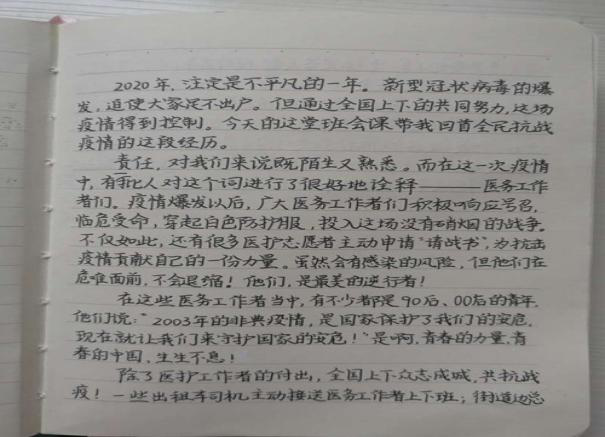 2020年,注定是不平凡的一年。新型冠状病毒的爆
发,迫使大家足不出户。但通过全国上下的共同努力,这场
疫情得到控制。今天的这堂班会课带我回首全民抗战
疫情的这段经历。
责任,对我们来说既陌生又熟悉。而在这一次疫情
中,有群人对这个词进行了很好地诠释——医务工作
者们。疫情爆发以后,广大医务工作者们积极响应号召,
临危受命,穿起白色防护服,投入这场没有硝烟的战争。
不仅如此,还有很多医护志愿者主动申请“请战书”,为抗击
疫情贡献自己的一份力量。虽然会有感染的风险,但他们在
危难面前,不会退缩!他们,是最美的逆行者!
在这些医务工作者当中,有不少都是90后、00后的青年,
他们说:“2003年的非典疫情,是国家保护了我们的安危,
现在就让我们来守护国家的安危!”是啊,青春的力量,青
春的中国,生生不息!
除了医护工作者的付出,全国上下众志成城,共抗战
疫!一些出租车司机主动接送医务工作者上下班;街道边总